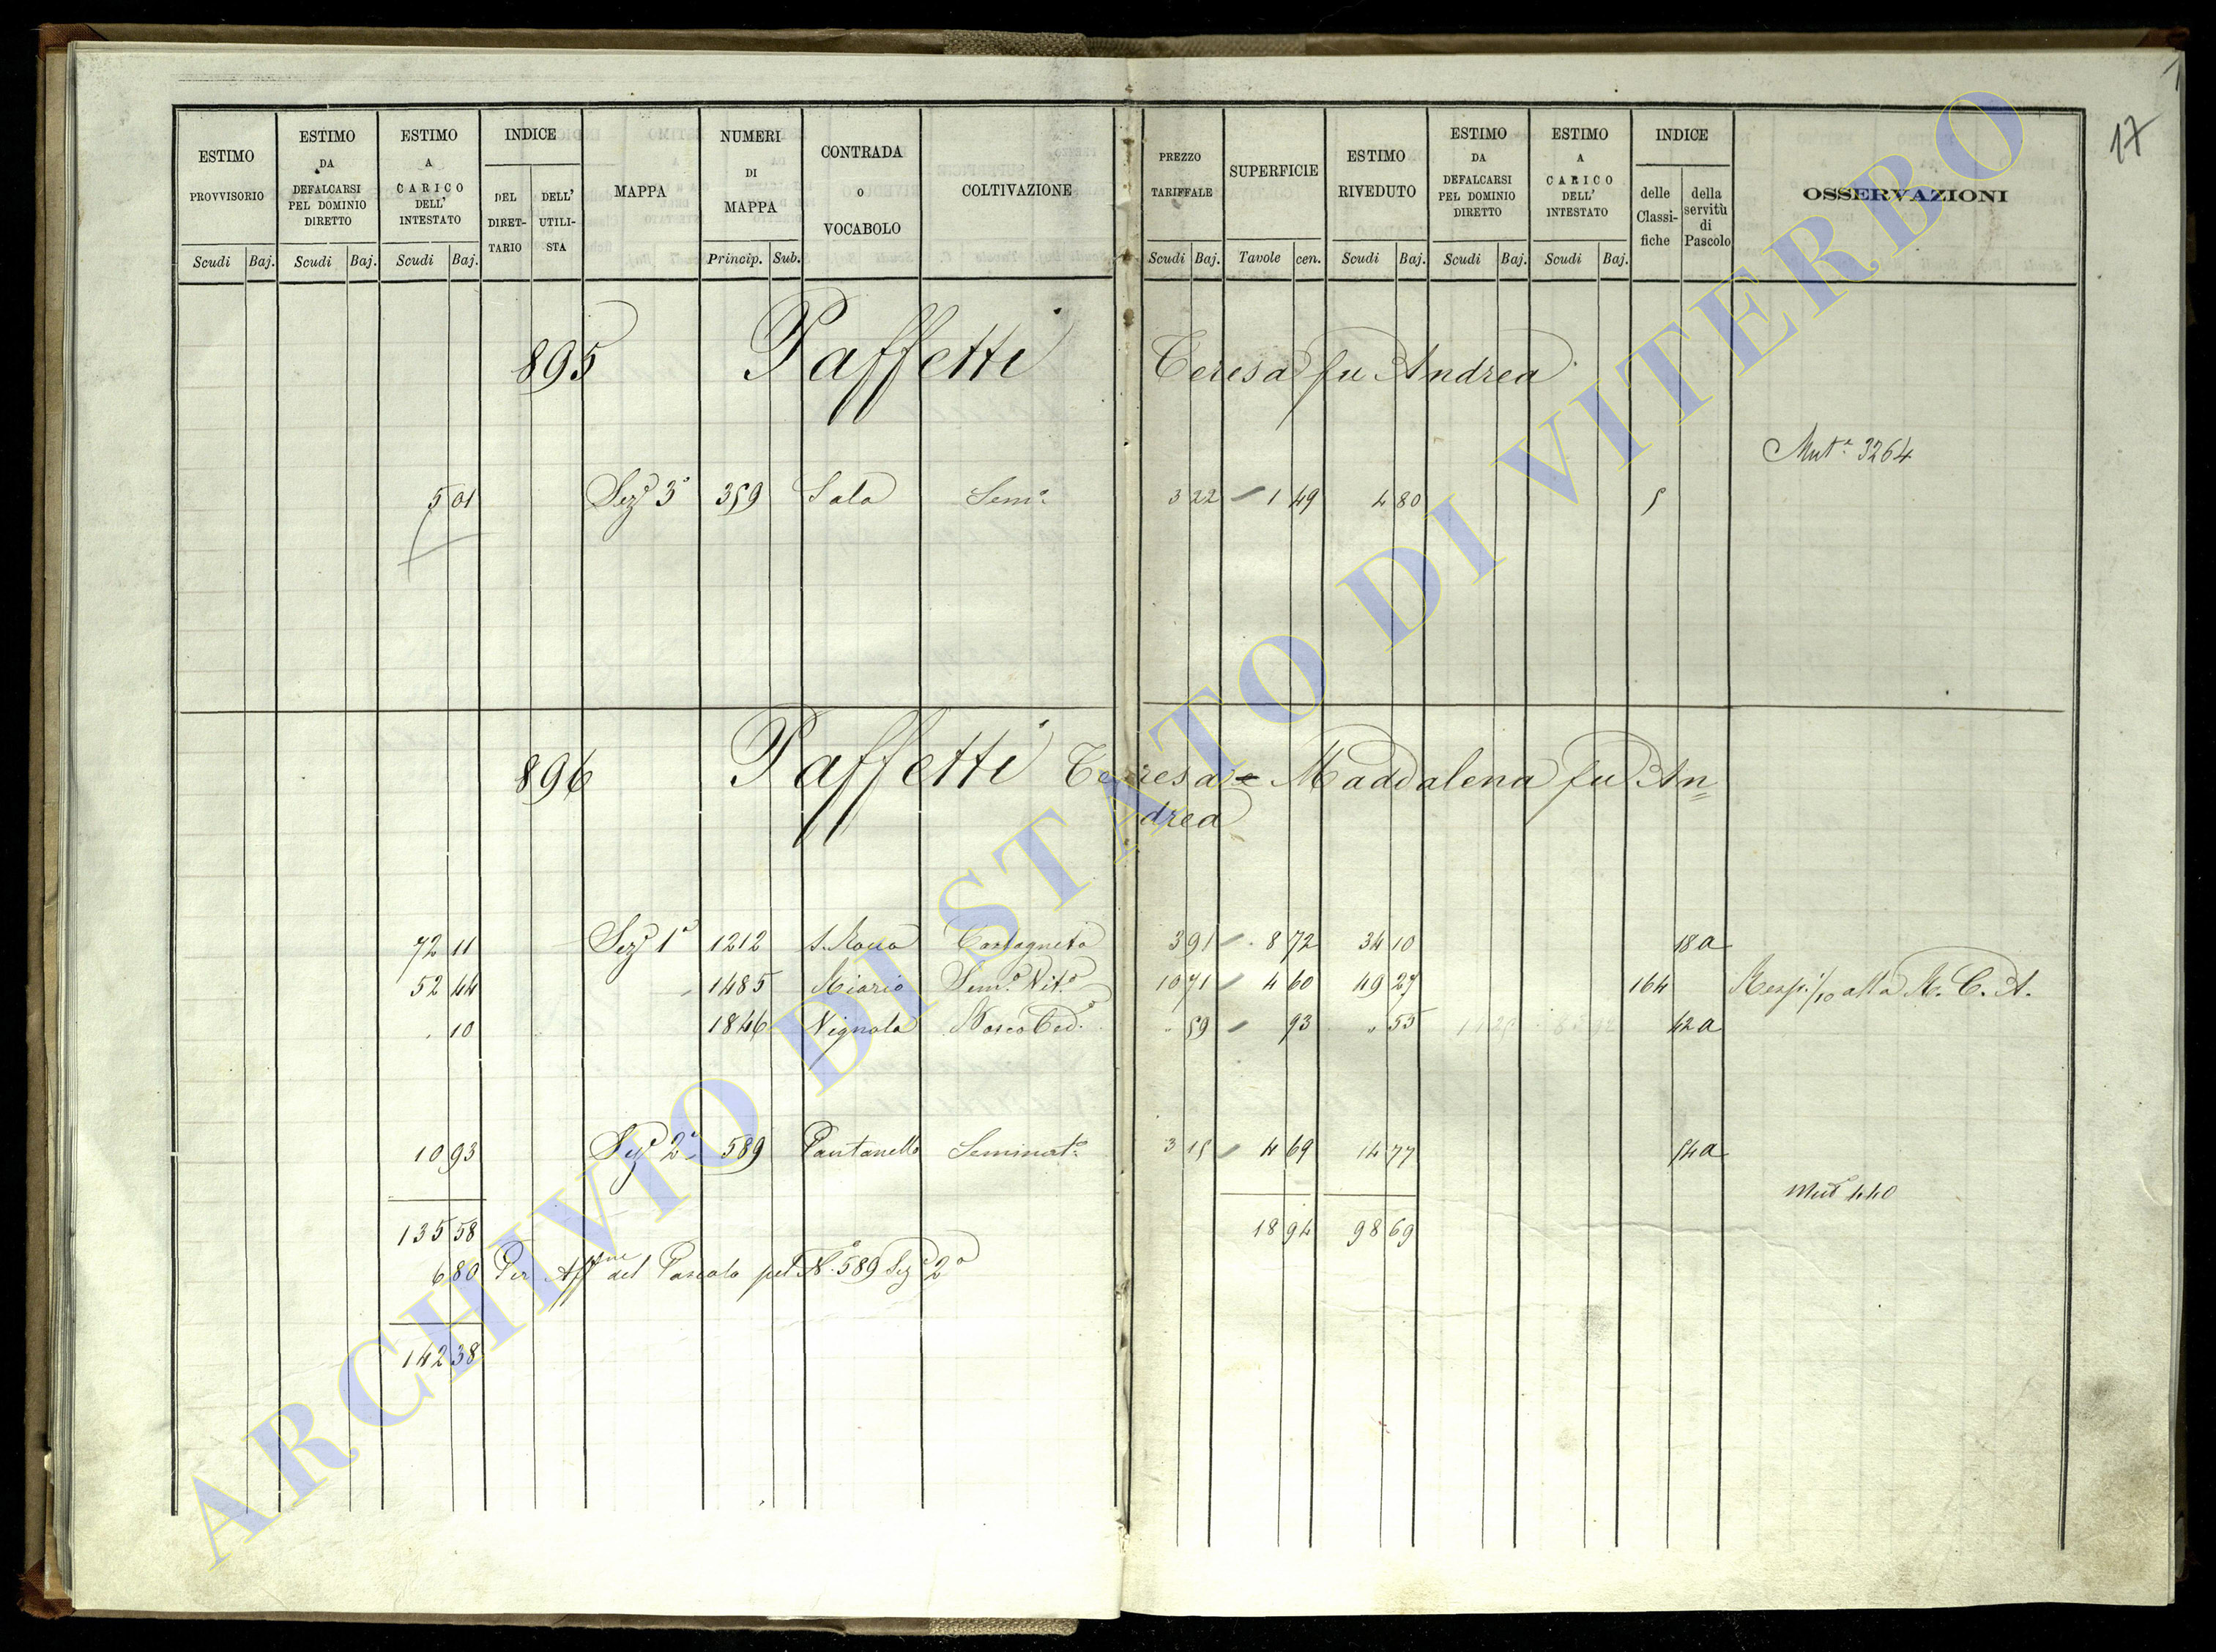 17
ESTIMO PROVVISORIO
ESTIMO DA DEFALCARSI PEL DOMINIO DIRETTO
ESTIMO A CARICO DELL' INTESTATO
INDICE
DEL DIRET-TARIO
DELL' UTILI-STA
MAPPA
NUMERI DI MAPPA
CONTRADA o VOCABOLO
COLTIVAZIONE
PREZZO TARIFFALE
SUPERFICIE
ESTIMO RIVEDUTO
ESTIMO DA DEFALCARSI PEL DOMINIO DIRETTO
ESTIMO A CARICO DELL' INTESTATO
INDICE
delle Classi-fiche
della servitù di Pascolo
OSSERVAZIONI
Scudi Baj. Scudi Baj. Scudi Baj. Princip. Sub. Scudi Baj. Tavole cen. Scudi Baj. Scudi Baj. Scudi Baj.
895 Paffetti Teresa fu Andrea
Mut.ª 3264
5 01 Sez.e 3ª 359 Sala Sem.º 3 22 1 49 4 80 5
896 Paffetti Teresa e Maddalena fu An=
drea
72 11 Sez.e 1ª 1212 S. Rocco Castagneto 3 91 8 72 34 10 18a
52 44 1485 Sem.º Vit.º 10 71 4 60 49 27 164 Resp. 1/10 alla R. C. A.
10 1846 Vignola Bosco Ced.º 59 93 55 42a
10 93 Sez.e 2ª 589 Pantanello Seminat.º 3 15 4 69 14 77 54a
Mut 440
135 58 18 94 98 69
6 80 Per Aff.ne del Pascolo pel N.º 589 Sez.e 2ª
142 38
ARCHIVIO DI STATO DI VITERBO